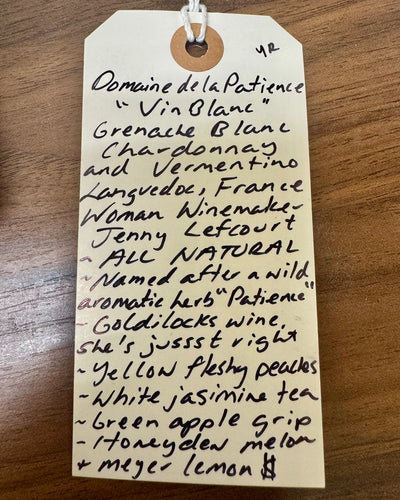 YR
Domaine de la Patience
"Vin Blanc"
Grenache Blanc
Chardonnay
and Vermentino
Languedoc, France
Woman Winemaker
Jenny Lefcourt
~ ALL NATURAL
~ Named after a wild
aromatic herb "Patience"
~ Goldilocks wine,
she's jussst right
~ Yellow fleshy peaches
~ White jasimine tea
~ Green apple grip
~ Honeydew melon
+ meyer lemon $